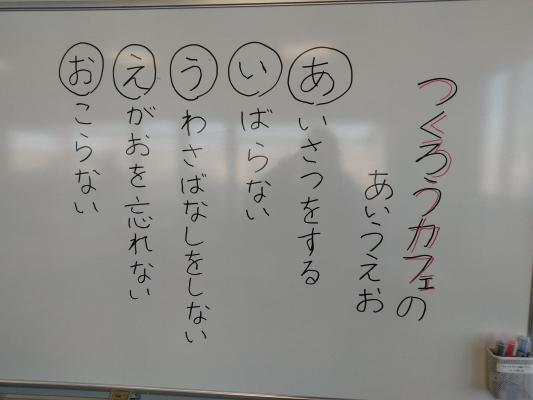 つくろうカフェの
あいうえお
あいさつをする
いばらない
うわさばなしをしない
えがおを忘れない
おこらない